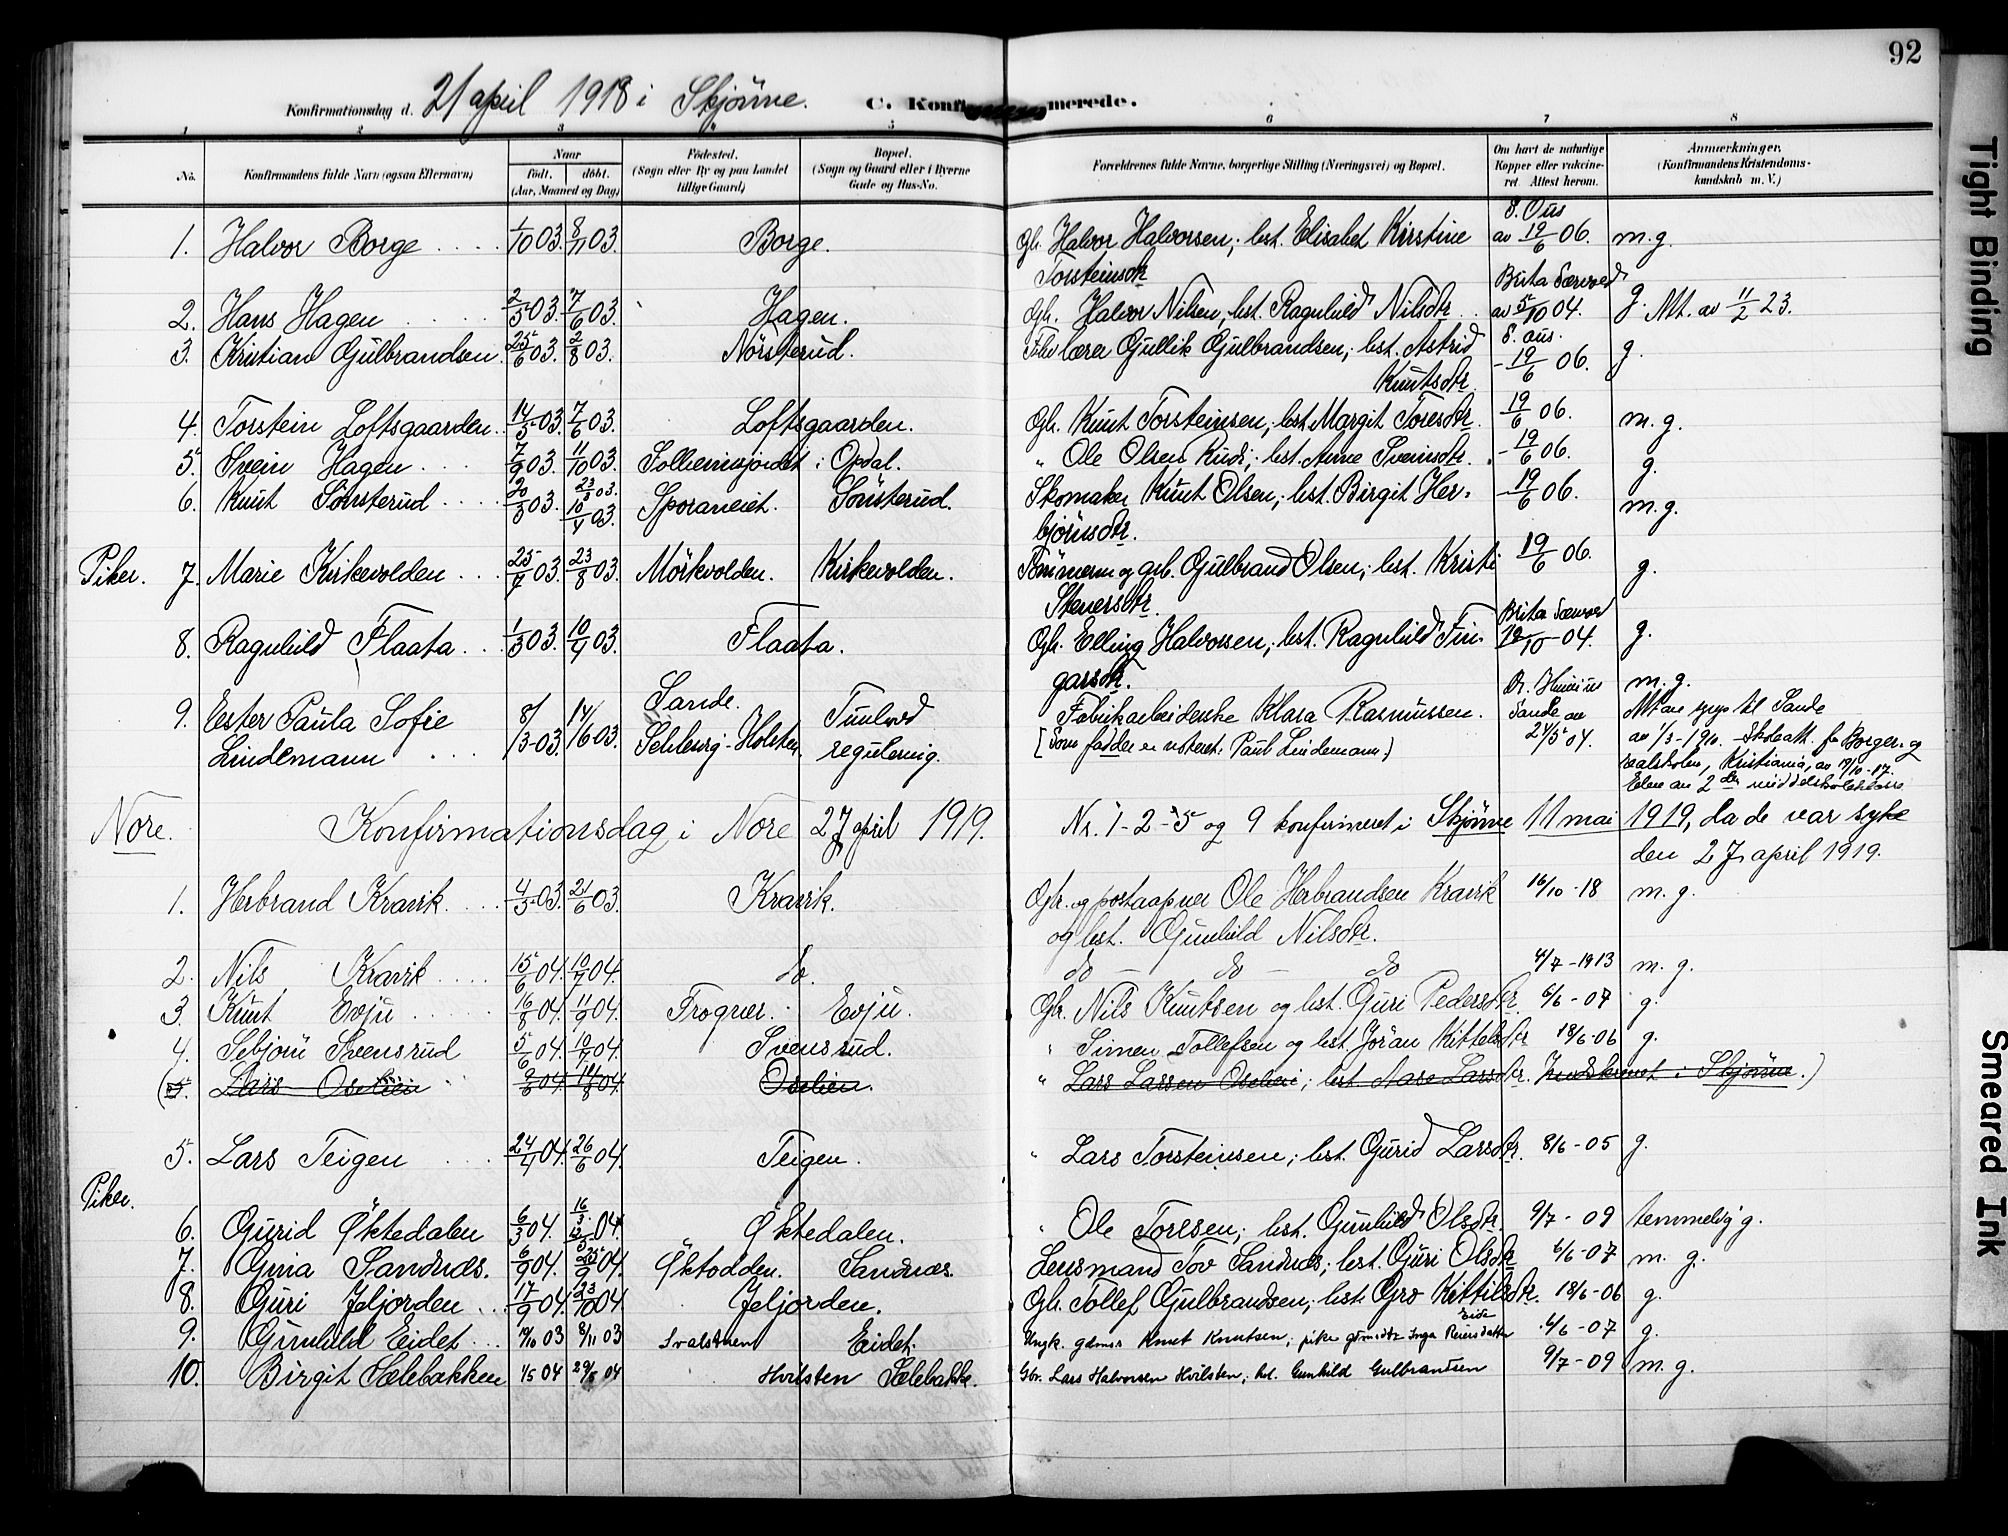 92
Konfirmationsdag d. 21 april 1918 i Skjönne. C. Konfirmerede.
1 2 3 4 5 6 7 8
No. Konfirmandens fulde Navn (ogsaa Efternavn) Naar födt. döbt. (Aar, Maaned og Dag) Födested. (Sogn eller By og paa Landet tillige Gaard) Bopæl. (Sogn og Gaard eller i Byerne Gade og Hus-No. Forældrenes fulde Navne, borgerlige Stilling (Næringsvei) og Bopæl. Om havt de naturlige Kopper eller vaccineret. Attest herom. Anmærkninger. (Konfirmandens Kristendomskundskab m. V.)
1. Halvor Borge 1/10 03. 8/11 03. Borge. Gbr. Halvor Halvorsen; hst. Elisabet Kirstine Torsteinsdtr. S. Ous av 19/6 06. m.g.
2. Hans Hagen 2/5 03. 7/6 03. Hagen. Gbr. Halvor Nilsen, hst. Ragnhild Nilsdtr. Brita Særvold av 5/10 04. g. Att. av 11/2 23.
3. Kristian Gulbrandsen. 25/6 03. 2/8 03. Nörsterud. lærer Gullik Gulbrandsen; hst. Astrid Knutsdtr. S. Ous. - 19/6 06. g.
4. Torstein Loftsgaarden. 14/5 03. 7/6 03. Loftsgaarden. Gbr. Knut Torsteinsen, hst. Margit Toresdtr. - 19/6 06. m.g.
5. Svein Hagen 7/9 03. 11/10 03. i Opdal. " Ole Olsen Ruds; hst. Anne Sveinsdtr. - 19/6 06. g.
6. Knut Sönsterud 20/3 03. 23/3 03. 10/4 03. Sporaneiet. Sönsterud. Skomaker Knut Olsen; hst. Birgit Herbjörnsdtr. - 19/6 06. m.g.
Piker. 7. Marie Kirkevolden 25/7 03. 23/8 03. Mörkvolden. Kirkevolden. Tömmerm og gbr. Gulbrand Olsen; hst. Kristi Steversdtr. 19/6 06. g.
8. Ragnhild Flaata 1/3 03. 10/4 03. Flaata. Gbr. Elling Halvorsen; hst. Ragnhild Fingarsdtr. Brita Særvold 19/10 - 04. g.
9. Ester Paula Sofie Lindemann 8/3-03. 14/6 03. Sande. Schlesvig-Holsten. Tunhovd regulering. Fabrikarbeiderske Klara Rasmussen. (Som fadder er noteret: Paul Lindemann.) Sande av 24/5 04. m.g. til Sande av 1/3-1910. Skoleatt. fr Borger- og realskolen, Kristiania, av 19/10-17. Elev av 2den middelskoleklasse
Nore. Konfirmationsdag i Nore 27 april 1919. Nr. 1-2-5 og 9 konfirmeret i Skjönne 11 mai 1919, da de var syke den 27 april 1919.
1. Herbrand Kravik 4/5 03. 21/6 03. Kravik. Gbr. og postaapner Ole Herbrandsen Kravik og hst. Gunhild Nilsdtr. 16/10-18 m.g.
2. Nils Kravik 15/6 04. 10/7 04. do. do - do - do 4/7-1913 m.g.
3. Knut Evju 16/8 04. 11/9 04. Frogner. Evju. Gbr. Nils Knutsen og hst. Guri Pedersdtr. 6/6-07 g.
4. Sebjörn Svensrud 5/6 04. 10/7 04. Svensrud. " Simen Tollefsen og hst. Jöran Kittelsdtr 18/6-06 g.
(5. Lars Oselien 9/6 04. 14/8 04. Oselien. " Lars Larsen Oselien; hst. Aase Larsdtr. Indskrevet i Skjönne.)
5. Lars Teigen 24/4 04. 26/6 04. Teigen. " Lars Torsteinsen; hst. Gurid Larsdtr. 8/6-05 g.
Piker.
6. Gurid Øktedalen 6/3 04. 16/3 04. Øktedalen. " Ole Toresen; hst. Gunhild Olsdtr. 9/7-09 temmelig g.
7. Gina Sandnæs. 6/9 04. 25/9 04. Øktodden. Sandnæs. Lensmand Tov Sandnæs; hst. Guri Olsdtr 6/6-07 m.g.
8. Guri Jeljorden 17/9 04. 23/10 04. Jeljorden. Gbr. Tollef Gulbrandsen; hst. Gro Kittilsdtr. 18/6-06 g.
9. Gunhild Eidet 19/10 03 8/11 03 Svalstuen Eidet. Ungk. gdmss Knut Knutsen; pike gdmsdtr Inga Reiersdatter Eide 6/6-07 g.
10. Birgit Sælebakken 1/5 04 29/5 04 Hvilsten Sælebakke. Gbr. Lars Halvorsen Hvilsten; hst. Gunhild Gulbrandsen 9/7-09 m.g.
Tight Binding
Smeared Ink